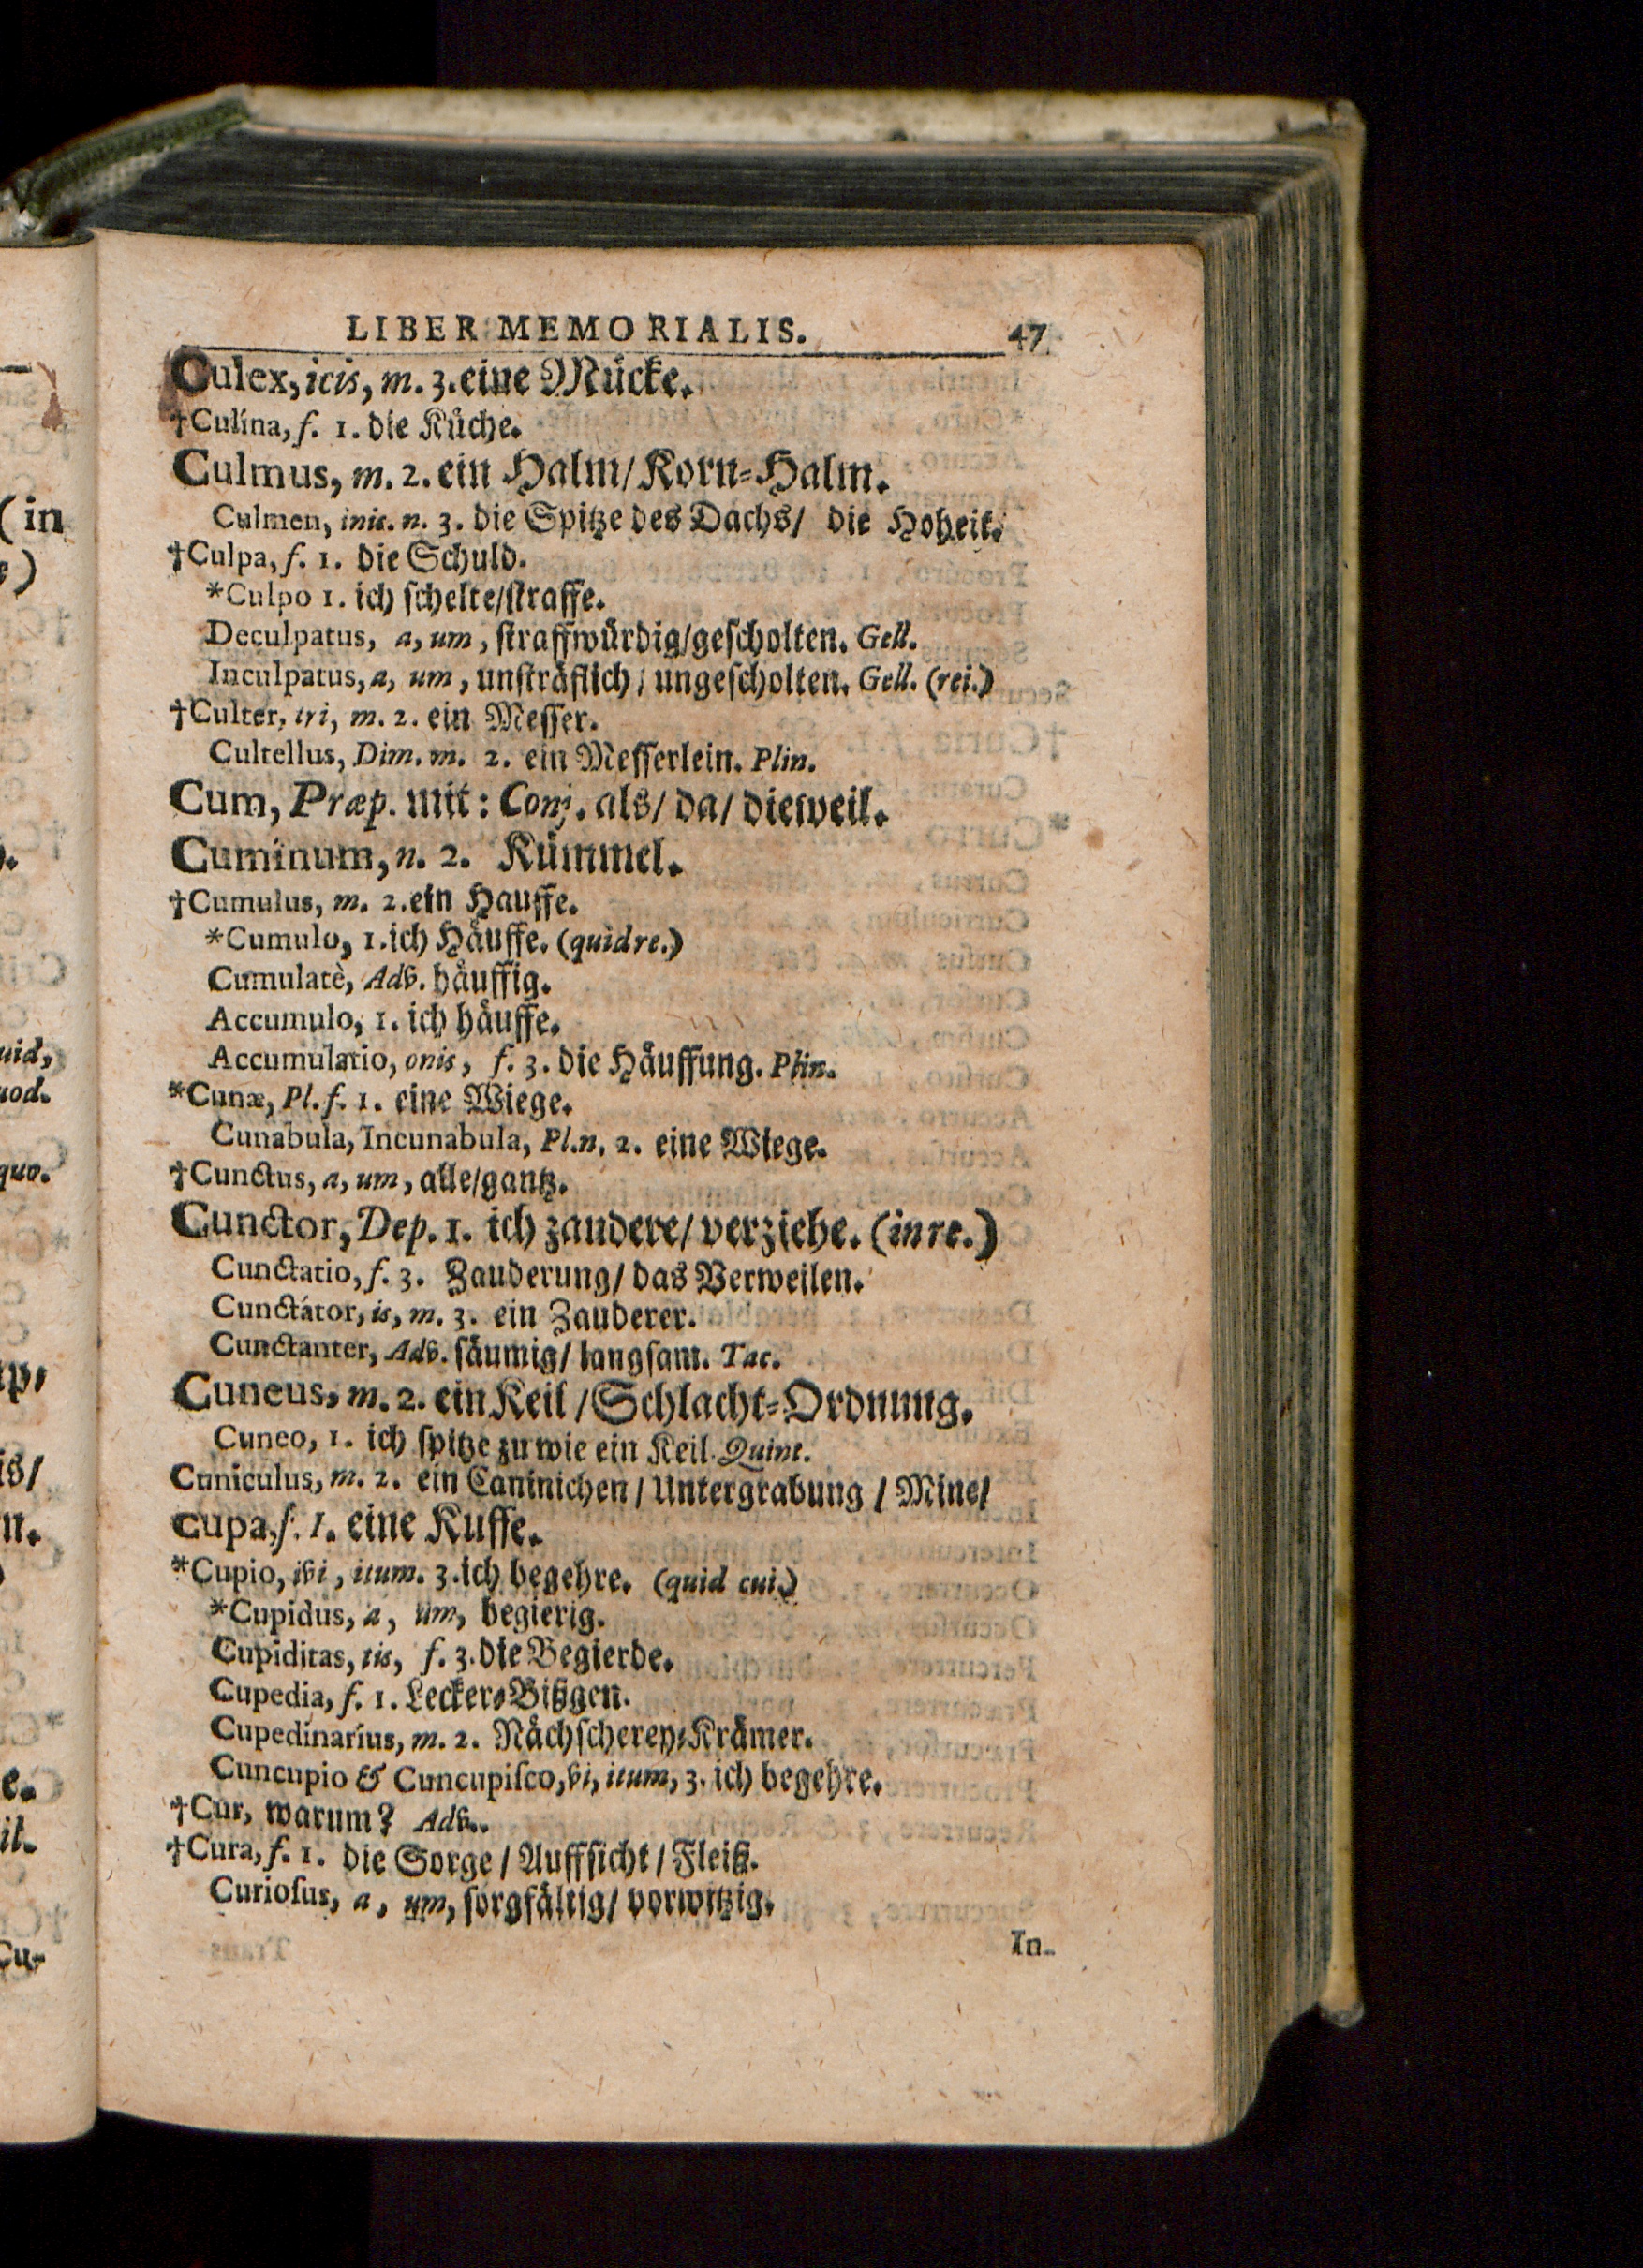 LIBER MEMORIALIS. 47
Culex, icis, m. 3. eine Mücke.
†Culina, f. 1. die Küche.
Culmus, m. 2. ein Halm/Korn-Halm.
Culmen, inis. n. 3. die Spitze des Dachs/ die Hoheit.
†Culpa, f. 1. die Schuld.
*Culpo 1. ich ſchelte/ſtraffe.
Deculpatus, a, um, ſtraffwürdig/geſcholten. Gell.
Inculpatus, a, um, unſträflich/ ungeſcholten. Gell. (rei.)
†Culter, tri, m. 2. ein Meſſer.
Cultellus, Dim. m. 2. ein Meſſerlein. Plin.
Cum, Præp. mit: Conj. als/ da/ dieweil.
Cuminum, n. 2. Kümmel.
†Cumulus, m. 2. ein Hauffe.
*Cumulo, 1. ich Häuffe. (quid re.)
Cumulatè, Adv. häuffig.
Accumulo, 1. ich häuffe.
Accumulatio, onis, f. 3. die Häuffung. Plin.
*Cunæ, Pl. f. 1. eine Wiege.
Cunabula, Incunabula, Pl. n. 2. eine Wiege.
†Cunctus, a, um, alle/gantz.
Cunctor, Dep. 1. ich zaudere/ verziehe. (in re.)
Cunctatio, f. 3. Zauderung/ das Verweilen.
Cunctátor, is, m. 3. ein Zauderer.
Cunctanter, Adv. ſäumig/ langſam. Tac.
Cuneus, m. 2. ein Keil /Schlacht-Ordnung.
Cuneo, 1. ich ſpitze zu wie ein Keil. Quint.
Cuniculus, m. 2. ein Caninichen / Untergrabung / Mine/
cupa, f. 1. eine Kuffe.
*Cupio, ivi, itum. 3. ich begehre. (quid cui.)
*Cupidus, a, um, begierig.
Cupiditas, tis, f. 3. die Begierde.
Cupedia, f. 1. Lecker-Bißgen.
Cupedinarius, m. 2. Nächſcherey-Krämer.
Cuncupio & Cuncupiſco, vi, itum, 3. ich begehre.
†Cur, warum? Adv..
†Cura, f. 1. die Sorge / Auffſicht / Fleiß.
Curioſus, a, um, ſorgfältig/ vorwitzig.
In-
(in
)
uid,
uod.
quo.
is/
n.
e.
Cu-